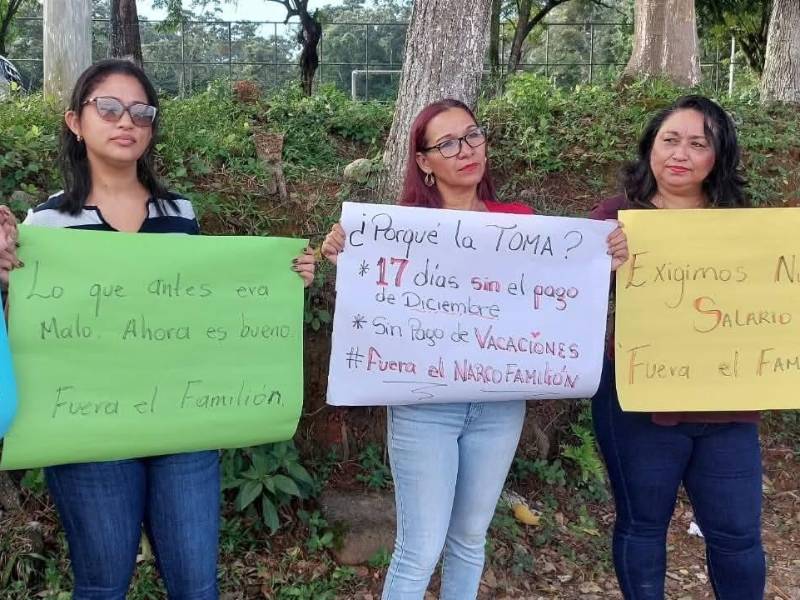 Lo que antes era
Malo. Ahora es bueno.
Fuera el Familión.
¿Porqué la TOMA?
* 17 días sin el pago
de Diciembre
* Sin Pago de VACACIONES
#Fuera el NARCOFAMILIÓN
Exigimos
SALARIO
Fuera el